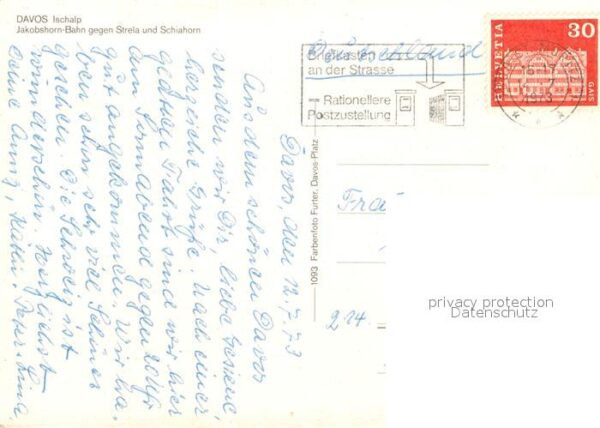 DAVOS Ischalp
Jakobshorn-Bahn gegen Strela und Schiahorn
Davos, den 12.7.73
Aus dem schönen Davos
senden wir Dir, liebe Gesiene,
herzliche Grüße. Nach einer
guten Fahrt sind wir hier
am Sonnabend gegen 20 Uhr
gut angekommen. Wir ha-
ben schon sehr viel Schönes
gesehen. Die Schweiz ist
wunderschön. Herzlichst
Deine Anni, Peter
1093 Farbenfoto Furter, Davos-Platz
Deutschland
Briefkasten
an der Strasse
— Rationellere
Postzustellung
HELVETIA
30
GAIS
Frä
214
privacy protection
Datenschutz